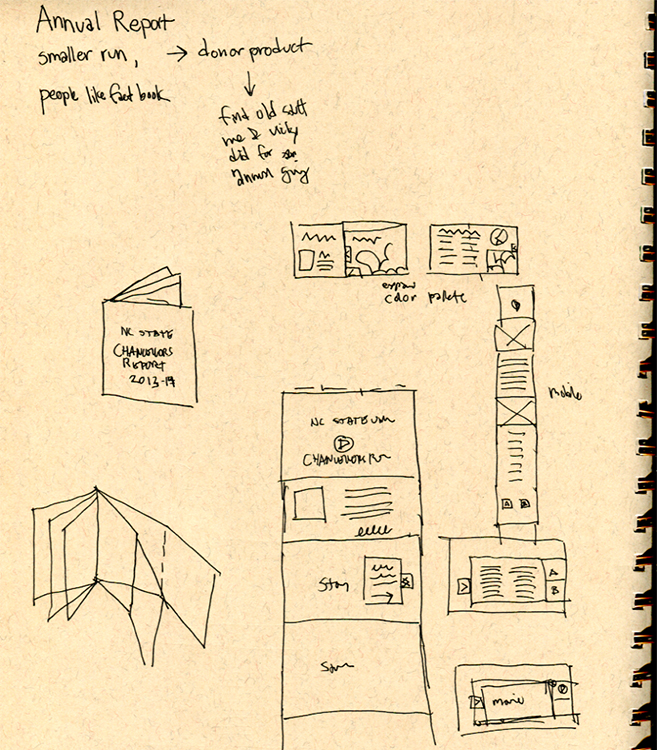 Annual Report
smaller run, → donor product
people like fact book
↓
find old stuff
me & vicky
did for
annual giving
expand
color palette
NC STATE
CHANCELLORS
REPORT
2013-14
mobile
NC STATE UNI
CHANCELLORS
Story
A B
A
B